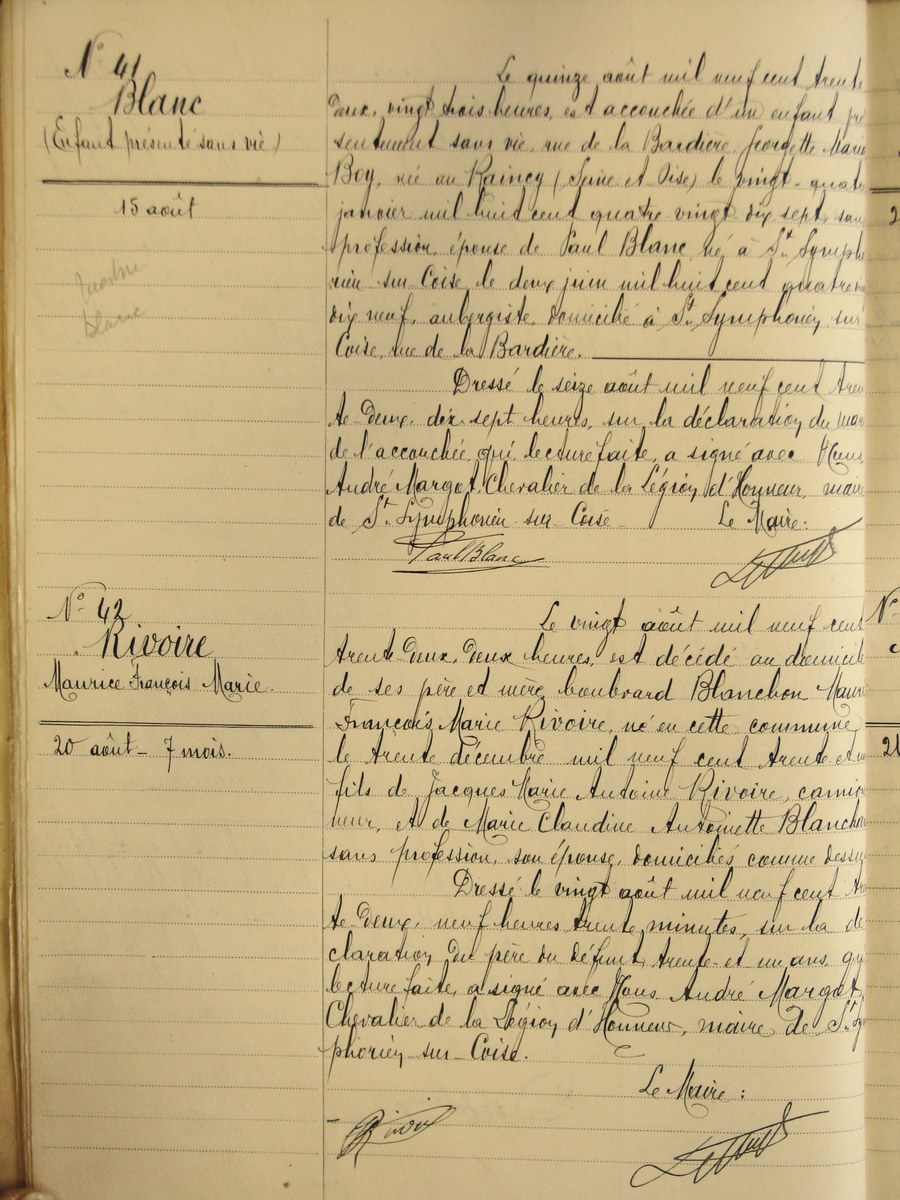 N° 41
Blanc
(Enfant présenté sans vie)
15 août
blanc
Le quinze août mil neuf cent trente
deux, vingt trois heures, est accouchée d'un enfant pré
sentement sans vie, rue de la Bardière, Georgette Marie
Boy, née au Raincy (Seine et Oise) le vingt-quatre
janvier mil huit cent quatre vingt dix sept, sans
profession, épouse de Paul Blanc né à St Sympho
rien sur Coise le deux juin mil huit cent quatre
dix neuf, aubergiste, domicilié à St Symphorien sur
Coise, rue de la Bardière.
Dressé le seize août mil neuf cent tren
te-deux, dix sept heures, sur la déclaration du mari
de l'accouchée qui, lecture faite, a signé avec Nous,
André Margot, Chevalier de la Légion d'Honneur, maire
de St Symphorien sur Coise
Le Maire:
Paul Blanc
N° 42
Rivoire
Maurice François Marie.
20 août - 7 mois.
Le vingt août mil neuf cent
trente deux, deux heures, est décédé au domicile
de ses père et mère boulevard Blanchon Mauri
François Marie Rivoire, né en cette commune
le trente décembre mil neuf cent trente et un
fils de Jacques Marie Antoine Rivoire, camion
neur, et de Marie Claudine Antoinette Blanchon
sans profession, son épouse, domiciliés comme dessus
Dressé le vingt août mil neuf cent tren
te deux, neuf heures trente minutes, sur la dé
claration du père du défunt, trente-et un ans, qui
lecture faite, a signé avec Nous André Margot,
Chevalier de la Légion d'Honneur, maire de St Sym
phorien sur Coise.
Le Maire :
Rivoire
N°